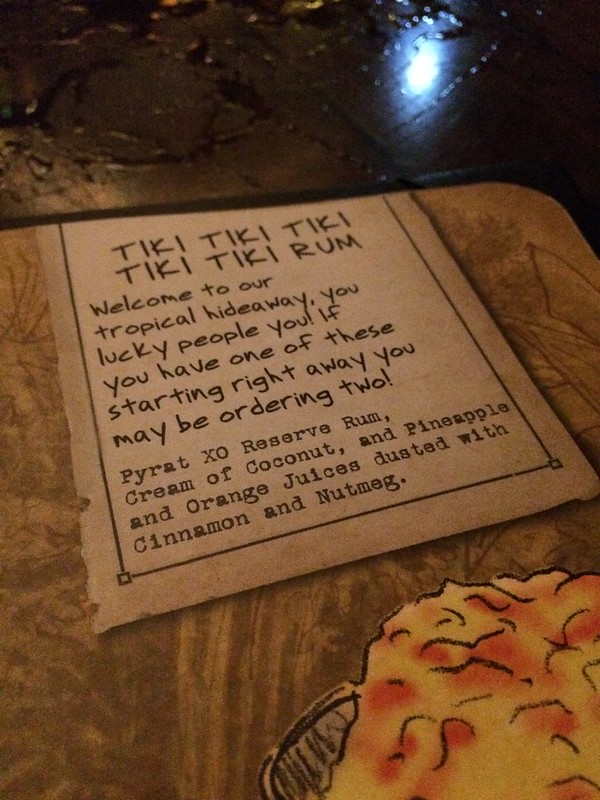 TIKI TIKI TIKI
TIKI TIKI RUM
Welcome to our
tropical hideaway, you
lucky people you! If
you have one of these
starting right away you
may be ordering two!
Pyrat XO Reserve Rum,
Cream of Coconut, and Pineapple
and Orange Juices dusted with
Cinnamon and Nutmeg.